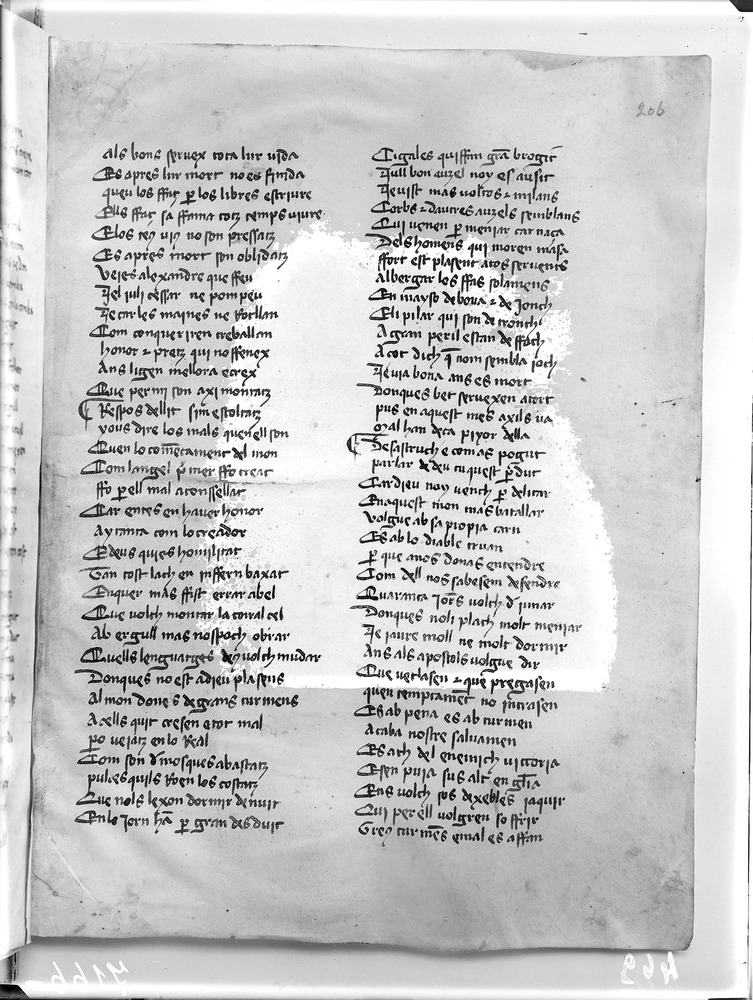 206
Als bons servex tota lur vida
Es apres lur mort no es finida
queu los ffay p los libres escriure
Ells ffay sa ffama totz temps viure
Elos ten viu no son pressatz
Es apres mort son oblidatz
Veies alexandre que ffeu
Ni el juli cessar ne pompeu
Ne carles maines ne Rotllan
Com conqueriren treballan
honor e pretz qui no ffenex
Ans ligen mellora e crex
Que per mi son axi montatz
Respos dellit sim escoltatz
yous dire los mals quen ell son
Quen lo comēcament del mon
Com langel pmer ffo creat
ffo p ell mal aconssellat
Car entes en haver honor
Aytanta com lo creador
E deus qui es homilitat
Tan tost lach en inffern baxat
Enquer mas ffist errar abel
Que volch montar la tor al cel
Ab ergull mas no spoch obrar
Quells lenguatges deu volch mudar
Donques no est a deu plasens
Al mon dones de grans turmens
Acells quit cresen e tot mal
po veiatz en lo Real
Com son d mosques abastatz
pulces quils Roen los costatz
Que nols lexon dormir de nuit
En lo jorn hā p gran desduit
Cigales qui ffan grā brogit
Null bon auzel noy es ausit
Ne vist mas voltos e milans
Corbs e dautres auzels semblans
Qui venen p meniar carnaça
Dels homens qui moren massa
ffort est plasent a tos servents
Albergar los ffas solamens
En mayso de bova e de jonch
El pilar qui son de tronch
A gran peril estan de ffoch
A tot dich q nom sembla joch
Ne via bona ans es mort
Donques bet servexen a tort
pus en aquest mes axils va
o z al han deça pijor della
Desastruch e com as pogut
parlar de deu tu quest pdut
Car dieu noy vench p delitar
En aquest mon mas batallar
Volgue ab sa propia carn
Es ab lo diable truan
p que a nos donas entendre
Com dell nos sabesem defendre
Quaranta jorns volch d junar
Donques noli plach molt meniar
Ne jaure moll ne molt dormir
Ans als apostols volgue dir
Que vetlasen e que pregasen
quen temptament no intrasen
Es ab pena es ab turmen
Acaba nostre salvamen
Es ach del enemich victoria
E sen puja sus alt en glia
E ns volch sos dexebles jaquir
Qui per ell volgren soffrir
Greu turmēs e mal es affan